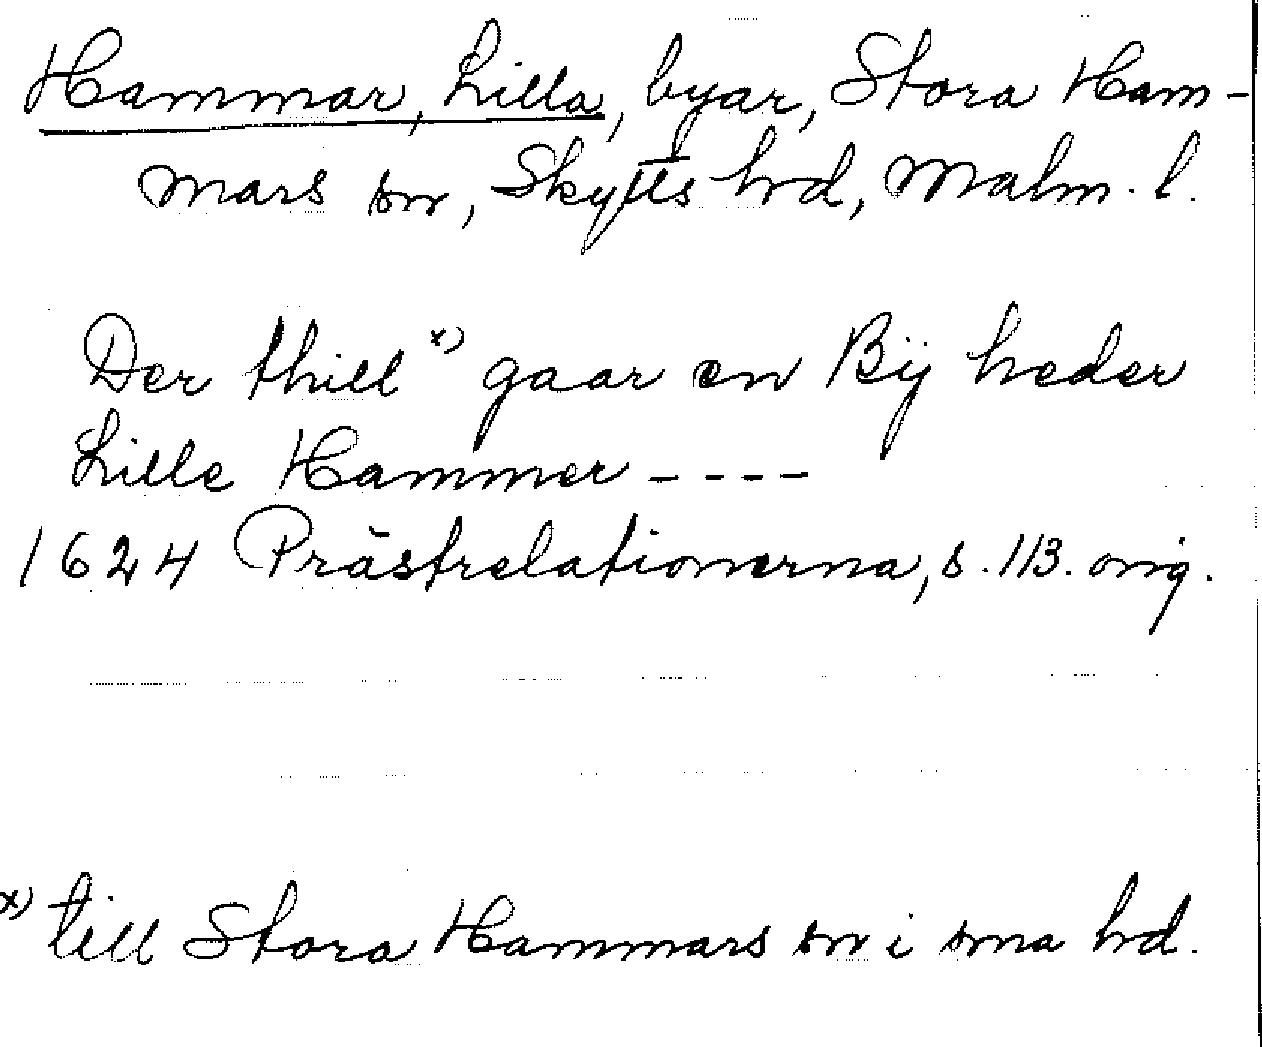 Hammar, Lilla, byar, Stora Ham-
mars sn, Skytts hrd, Malm. l.
Der thill x) gaar en Bÿ heder
Lille Hammer ----
1624 Prästrelationerna, s. 113. orig.
x) till Stora Hammars sn i sma hrd.